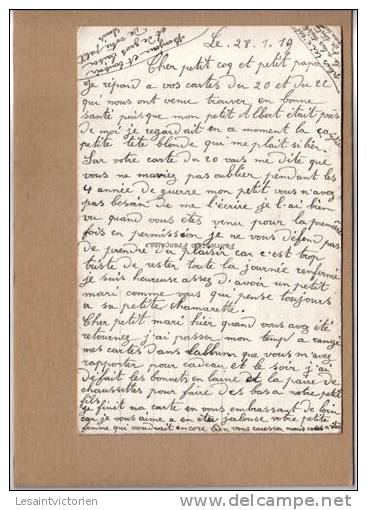 Le . 28 . 1 . 19
Bonjour et baiser
et de gros baiser
de votre petit
Cher petit coq et petit papa
Je répond a vos cartes du 20 et du 22
qui nous ont venue trouver en bonne
santé puisque mon petit Albert était près
de moi je regardait en ce moment la
petite tête blonde qui me plait si bien
Sur votre carte du 20 vous me dite que
vous ne m'aviez pas oublier pendant les
4 année de guerre mon petit vous n'avez
pas besoin de me l'écrire je l'ai bien
vu quand vous etes venue pour la première
fois en permission je ne vous défend pas
de prendre du plaisir car c'est trop
triste de rester toute la journée renfermé
je suis heureuse assez d'avoir un petit
mari comme vous qui pense toujours
a sa petite chamarette.
Cher petit mari hier quand vous avez été
retournez j'ai passer mon temp a rangé
mes cartes dans l'album que vous m'avez
rapporter pour cadeau et le soir j'ai
défait les bonnets en laine et la paire de
chaussettes pour faire des bas a notre petit
fils.
je finit ma carte en vous embrassant de loin
car je vous aime a en être jalouse votre petite
femme qui voudrait encore bien vous caresser mais vous
Lesaintvictorien
delcampe.net